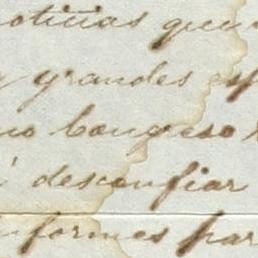 noticias que
y grandes es
no Congreso
desconfiar
nformes par